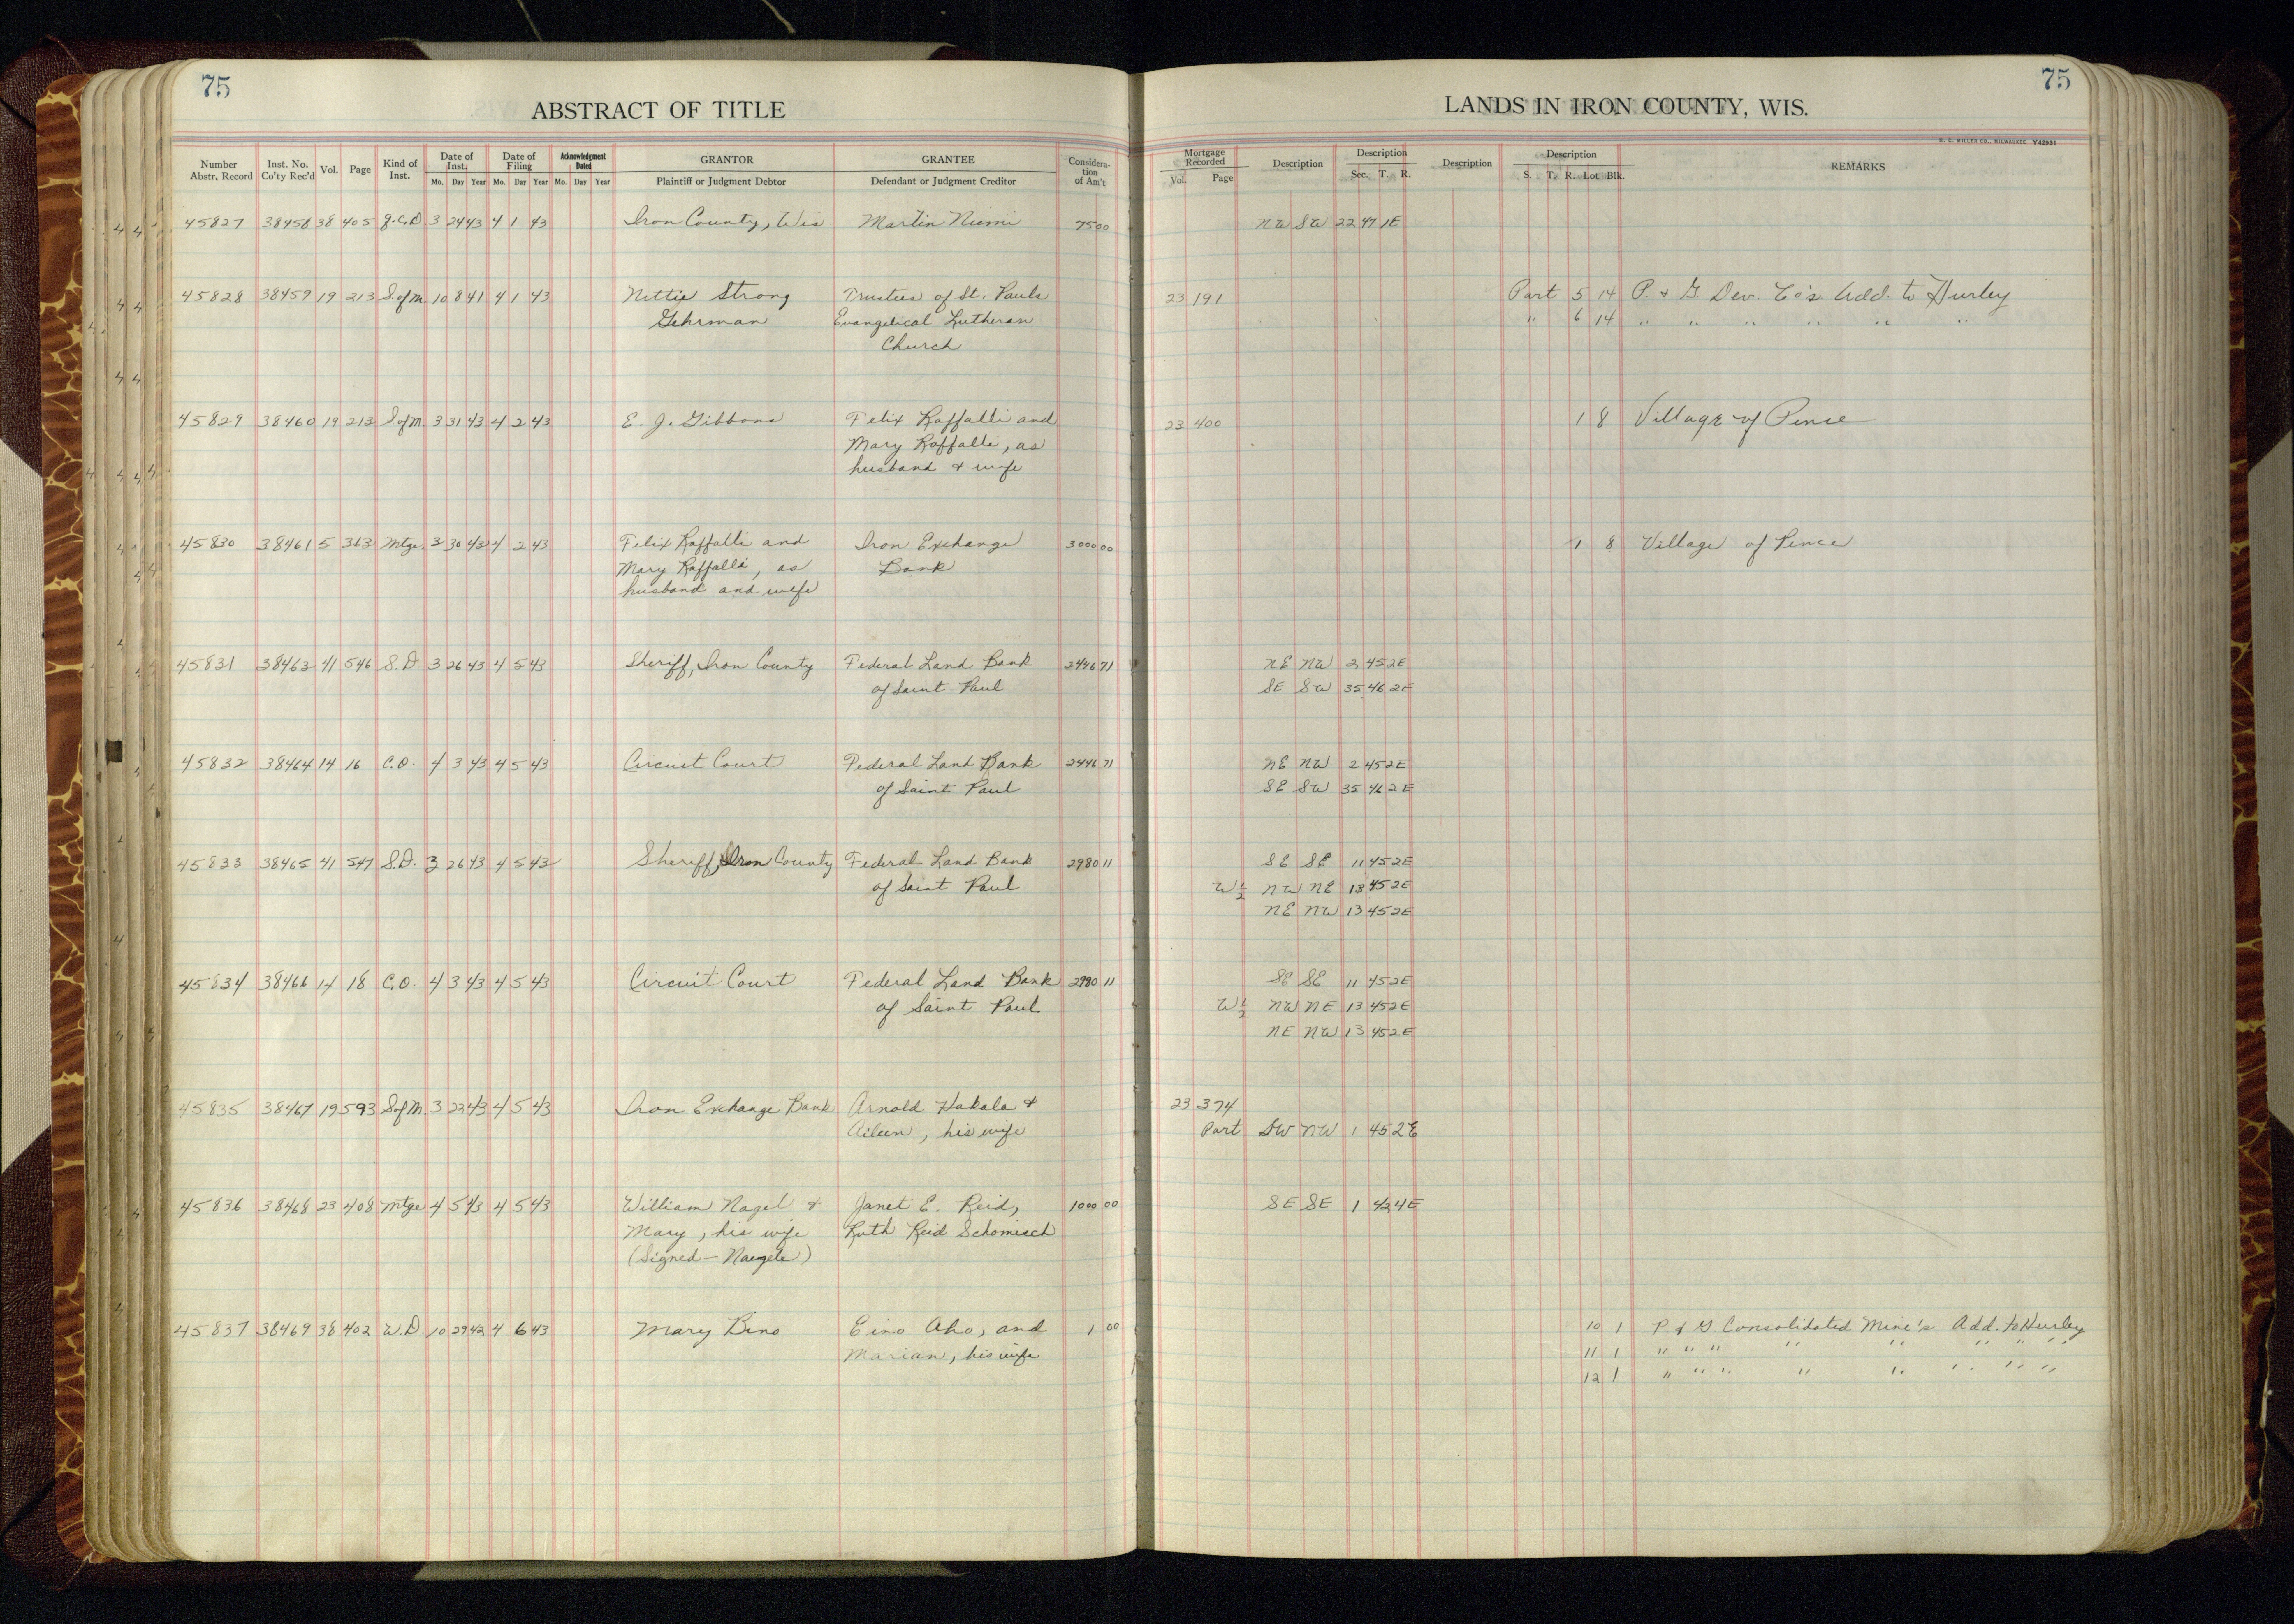 75
75
ABSTRACT OF TITLE
LANDS IN IRON COUNTY, WIS.
H. C. MILLER CO., MILWAUKEE Y42931
Number Abstr. Record | Inst. No. Co'ty Rec'd | Vol. | Page | Kind of Inst. | Date of Inst. Mo. Day Year | Date of Filing Mo. Day Year | Acknowledgment Dated Mo. Day Year | GRANTOR Plaintiff or Judgment Debtor | GRANTEE Defendant or Judgment Creditor | Considera- tion of Am't | Mortgage Recorded Vol. Page | Description | Description Sec. T. R. | Description | Description S. T. R. Lot Blk. | REMARKS
45827 38458 38 405 Q.C.D. 3 24 43 4 1 43 Iron County, Wis Martin Niemi 75 00 NW SW 22 47 1E
45828 38459 19 213 S.ofM. 10 8 41 4 1 43 Nettie Strong Trustees of St. Pauls 23 191 Part 5 14 P. & G. Dev. Co's. Add. to Hurley
Gehrman Evangelical Lutheran " 6 14 " " " " " "
Church
45829 38460 19 213 SofM. 3 31 43 4 2 43 E. J. Gibbons Felix Raffalli and 23 400 1 8 Village of Pence
Mary Raffalli, as
husband & wife
45830 38461 5 363 Mtge. 3 30 43 4 2 43 Felix Raffalli and Iron Exchange 3000 00 1 8 Village of Pence
Mary Raffalli, as Bank
husband and wife
45831 38463 41 546 S.D. 3 26 43 4 5 43 Sheriff, Iron County Federal Land Bank 2446 71 NE NW 2 45 2E
of Saint Paul SE SW 35 46 2E
45832 38464 14 16 C.O. 4 3 43 4 5 43 Circuit Court Federal Land Bank 2446 71 NE NW 2 45 2E
of Saint Paul SE SW 35 46 2E
45833 38465 41 547 S.D. 3 26 43 4 5 43 Sheriff, Iron County Federal Land Bank 2980 11 SE SE 11 45 2E
of Saint Paul W½ NW NE 13 45 2E
NE NW 13 45 2E
45834 38466 14 18 C.O. 4 3 43 4 5 43 Circuit Court Federal Land Bank 2980 11 SE SE 11 45 2E
of Saint Paul W½ NW NE 13 45 2E
NE NW 13 45 2E
45835 38467 19 593 SofM. 3 22 43 4 5 43 Iron Exchange Bank Arnold Hakala & 23 374
Aileen, his wife Part SW NW 1 45 2E
45836 38468 23 408 Mtge 4 5 43 4 5 43 William Nagel & Janet E. Reid, 1000 00 SE SE 1 42 4E
Mary, his wife Ruth Reid Schomisch
(Signed - Naegele)
45837 38469 38 402 W.D 10 29 42 4 6 43 Mary Bino Eino Aho, and 1 00 10 1 P. & G. Consolidated Mine's Add. to Hurley
Marian, his wife 11 1 " " " " " " " "
12 1 " " " " " " " "